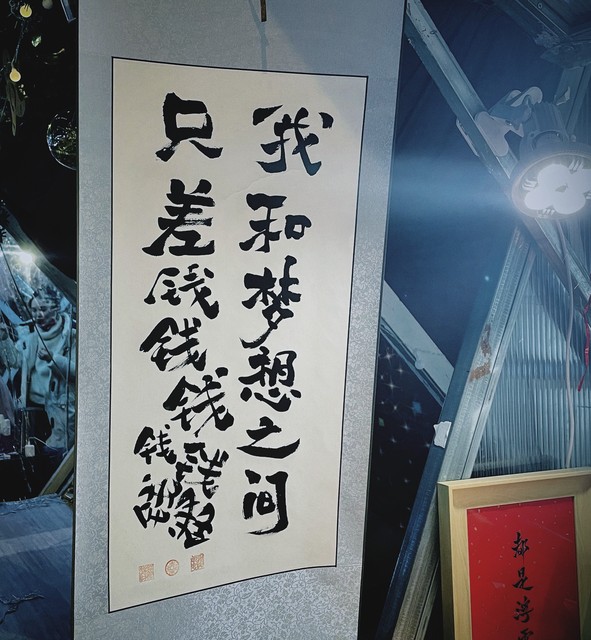 我和梦想之间
只差钱钱钱钱钱
都是浮